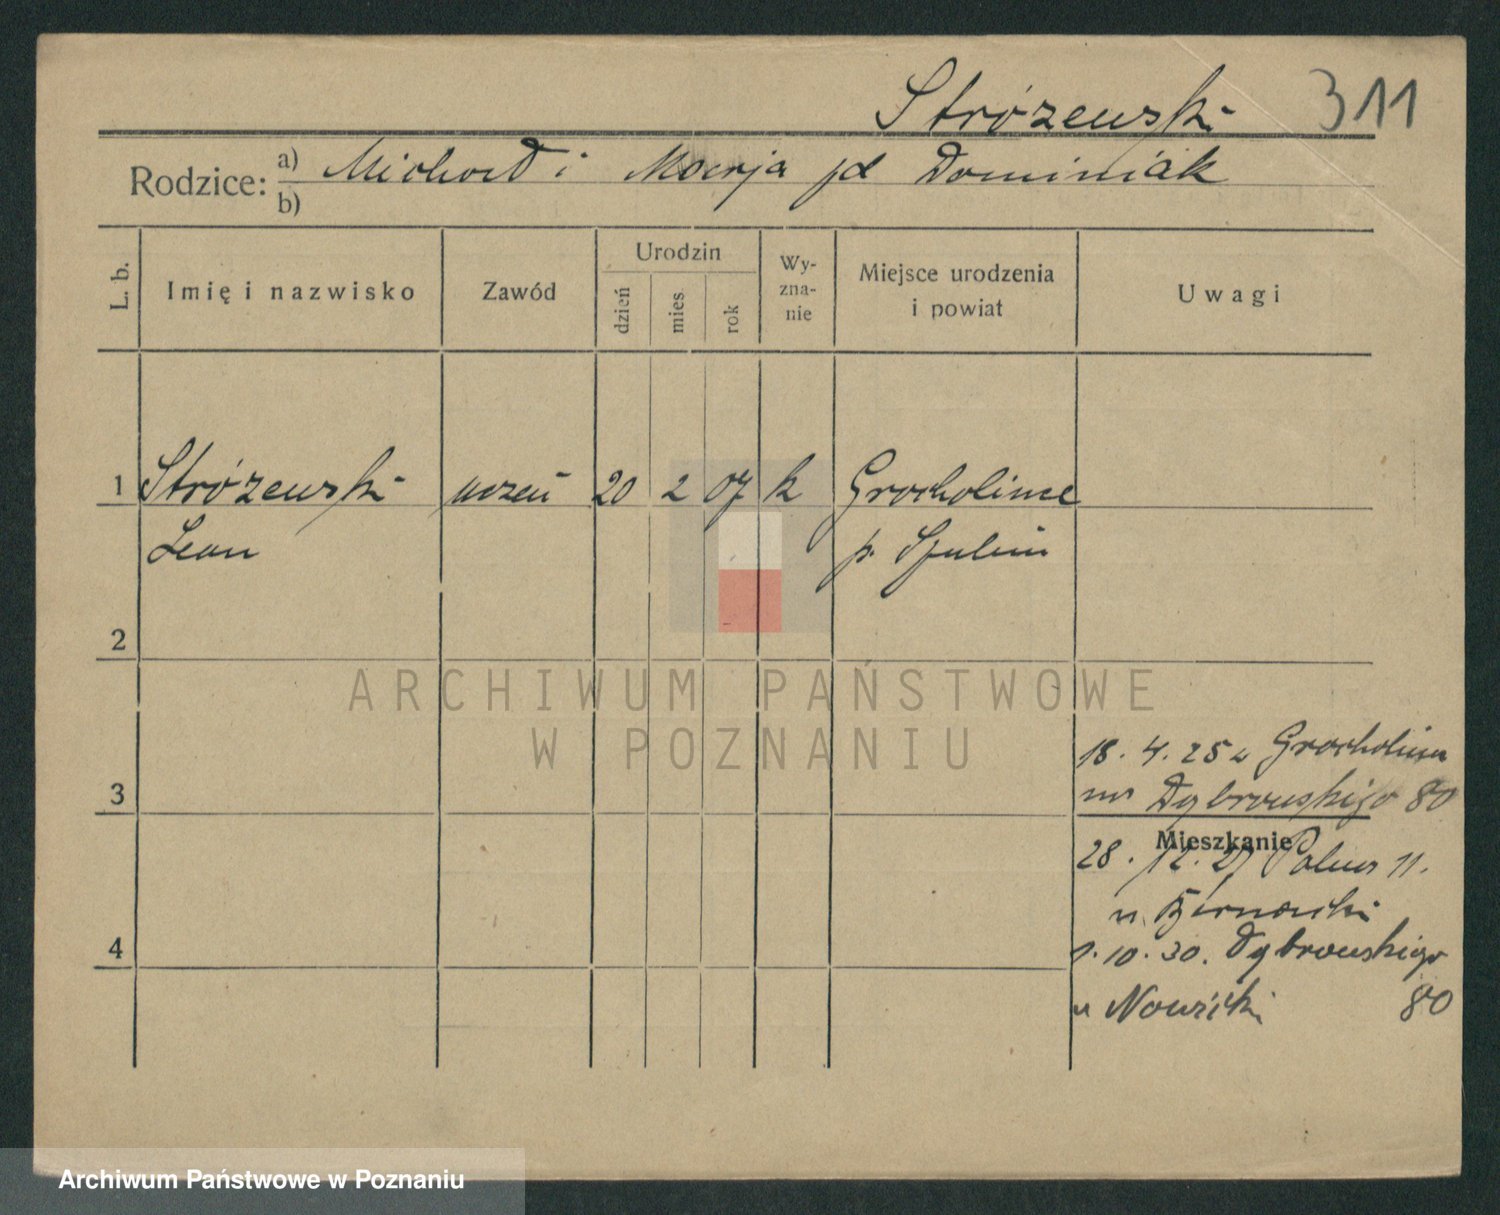 Stróżewski 311
Rodzice: a) Michał i Marja zd Dominiak
b)
L. b.
Imię i nazwisko
Zawód
Urodzin
dzień
mies.
rok
Wy-
zna-
nie
Miejsce urodzenia
i powiat
Uwagi
1 Stróżewski uczeń 20 2 07 k Grocholince
Leon p. Szubin
2
ARCHIWUM PAŃSTWOWE
W POZNANIU
18. 4. 25 z Grocholina
3 Dąbrowskiego 80
Mieszkanie
28. 12. 27 11.
u.
4 1. 10. 30. Dąbrowskiego
u Nowicki 80
Archiwum Państwowe w Poznaniu